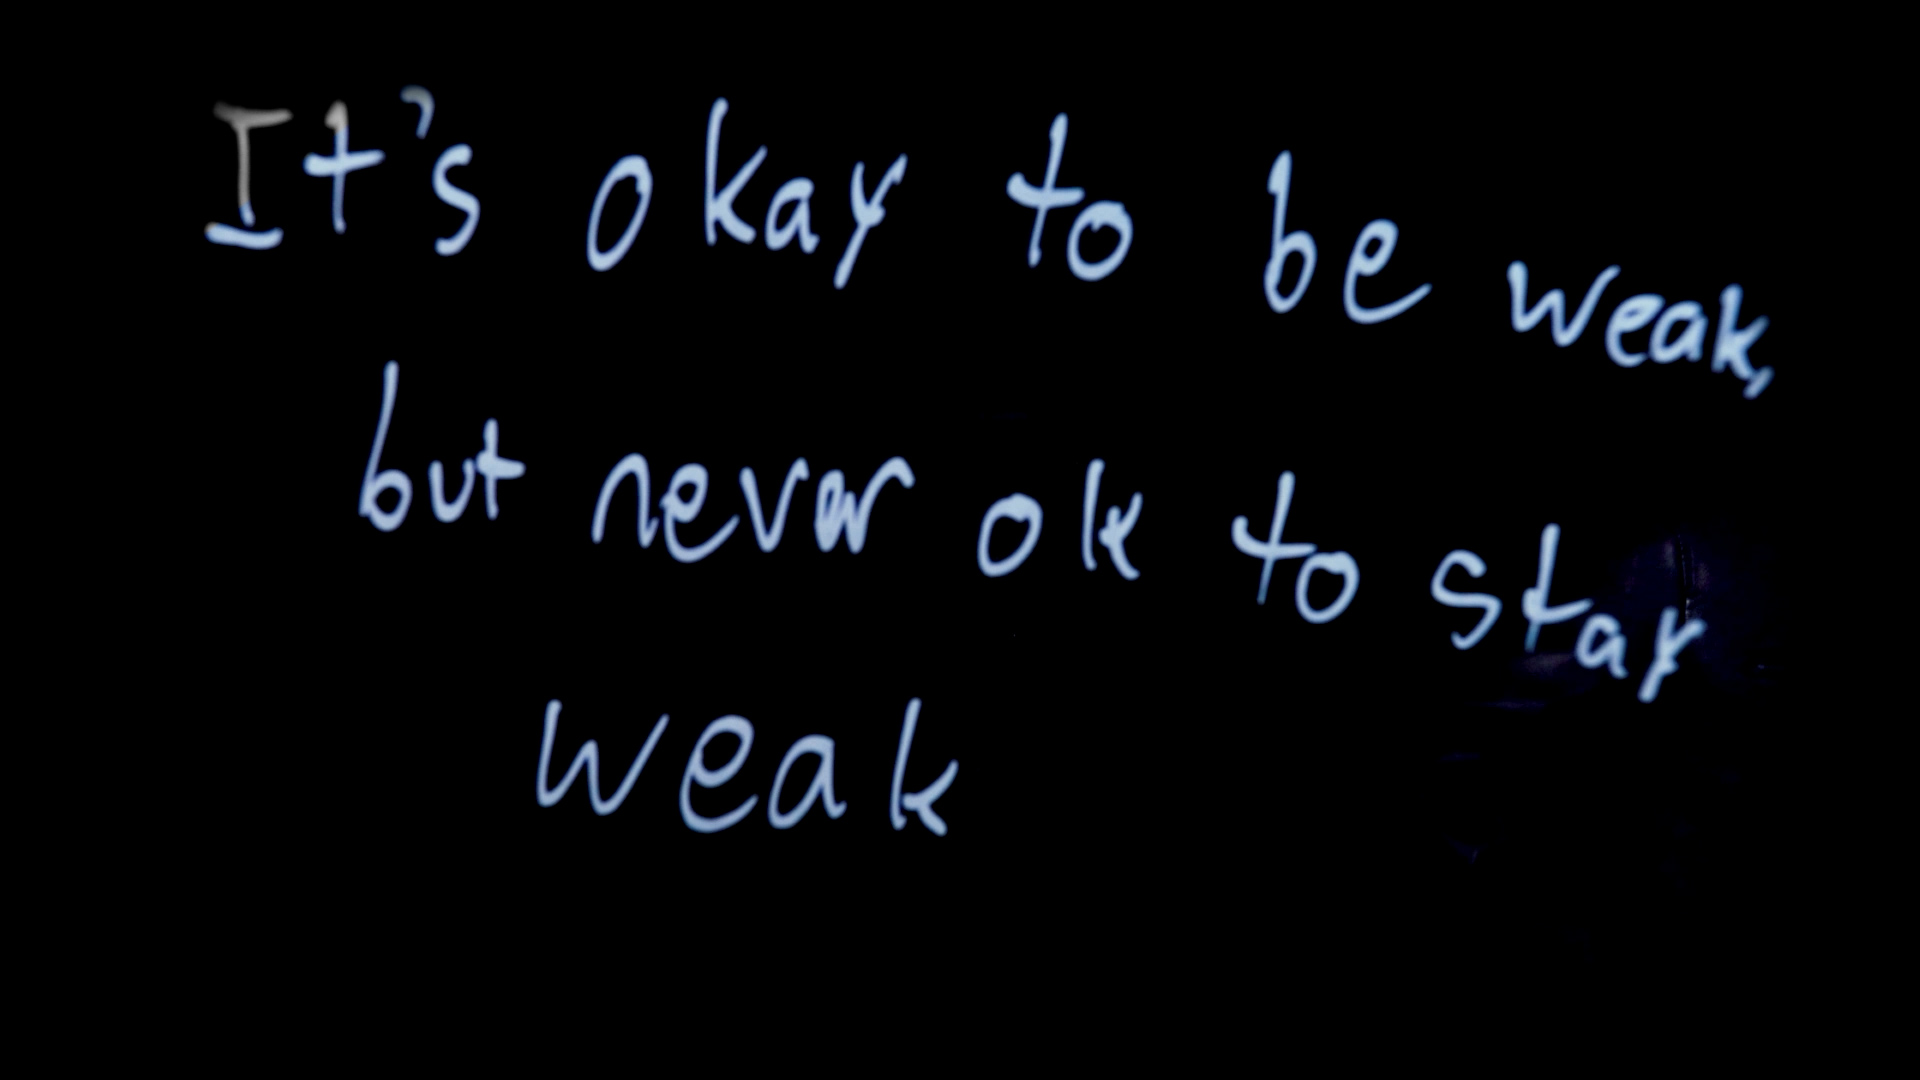 It's okay to be weak,
but never ok to stay
weak